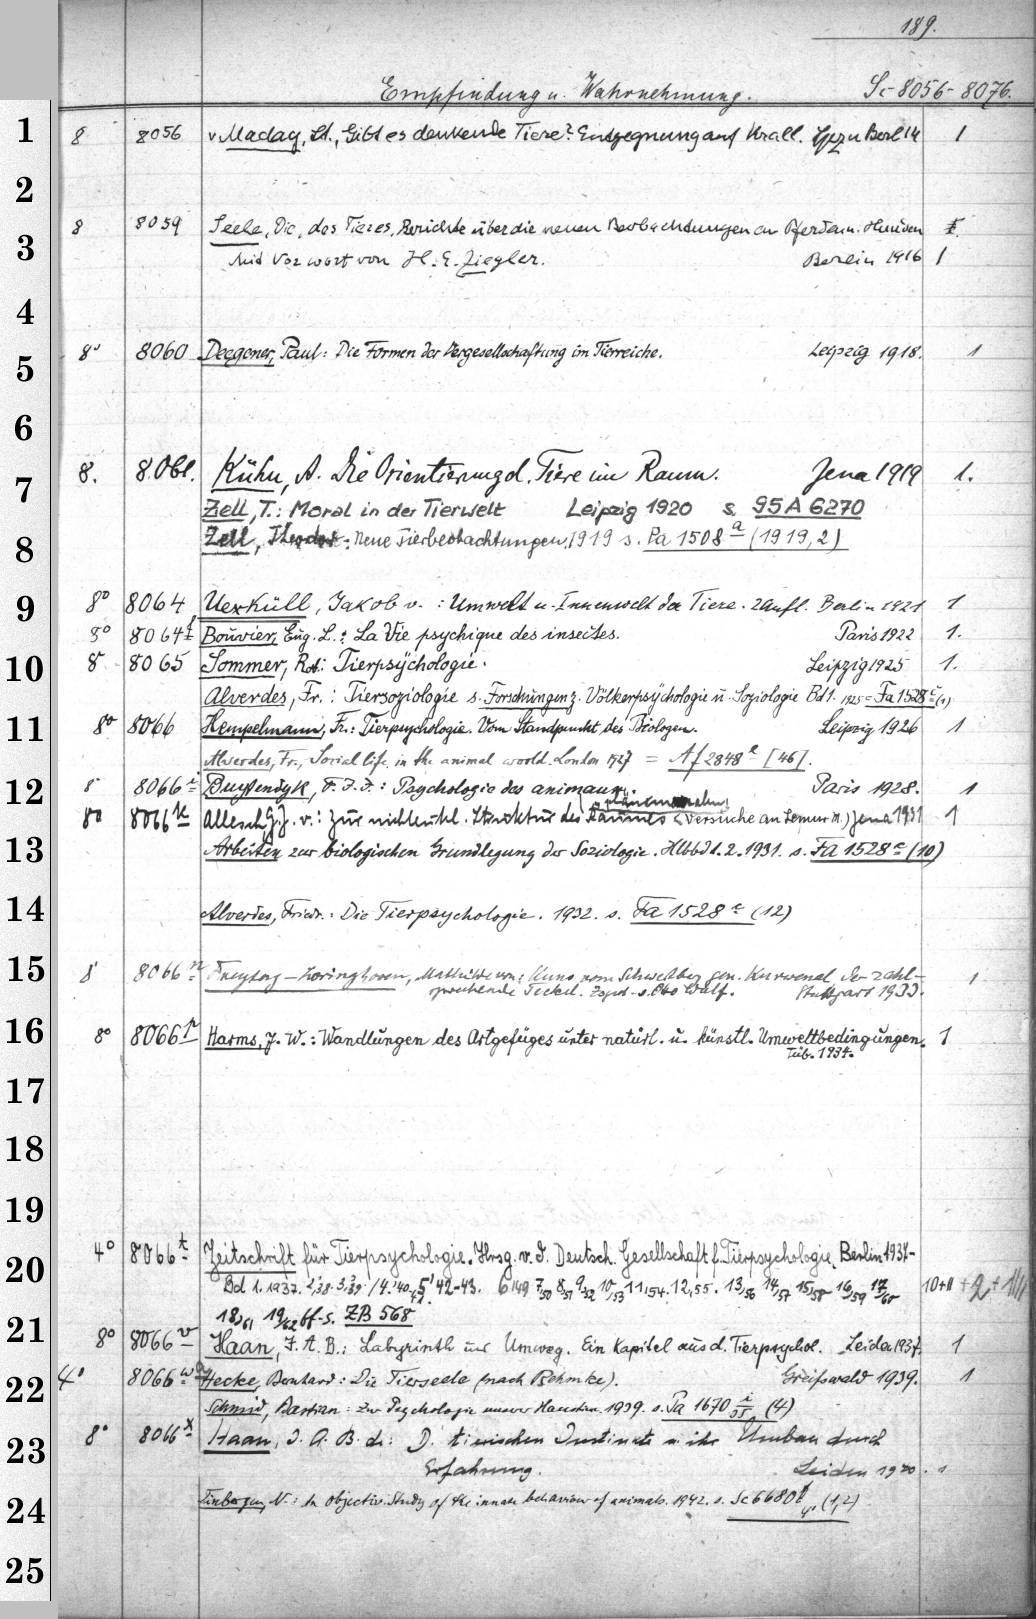 189.
Empfindung u. Wahrnehmung. Sc-8056-8076.
1 8 8056 v Maday, St., Gibt es denkende Tiere? Entgegnung auf Krall. Lpz u Berl 14 1
2
8 8059 Seele, Die, des Tieres, Berichte über die neuen Beobachtungen an Pferden u. Hunden
3 Mit Vorwort von H. E. Ziegler. Berlin 1916 1
4
5 8° 8060 Deegener, Paul: Die Formen der Vergesellschaftung im Tierreiche. Leipzig 1918. 1
6
7 8. 8061. Kühn, A. Die Orientierung d. Tiere im Raum. Jena 1919 1.
Zell, T.: Moral in der Tierwelt Leipzig 1920 s. 95 A 6270
8 Zell, Theodor: Neue Tierbeobachtungen, 1919 s. Pa 1508 a (1919,2)
9 8° 8064 Uexküll, Jakob v. : Umwelt u. Innenwelt der Tiere. 2 Aufl. Berlin 1921 1
8° 8064 f Bouvier, Eug. L.: La Vie psychique des insectes. Paris 1922 1.
10 8 8065 Sommer, Rob.: Tierpsychologie. Leipzig 1925 1.
Alverdes, Fr.: Tiersoziologie s. Forschungen z. Völkerpsychologie u. Soziologie Bd 1. 1925 = Fa 1528 c (1)
11 8° 8066 Hempelmann, Fr.: Tierpsychologie. Vom Standpunkt des Biologen. Leipzig 1926 1
Alverdes, Fr., Social life in the animal world. London 1927 = Af 2848 l [46].
12 8 8066 i Buytendijk, F. J. J.: Psychologie des animaux. Paris 1928. 1
8° 8066 k Allesch, G. J. v.: Zur nichteukl. Struktur des Raumes (Versuche an Lemur m.) Jena 1931 1
13 Arbeiten zur biologischen Grundlegung der Soziologie. Hlbbd 1.2.1931. s. Fa 1528 c (10)
14 Alverdes, Friedr.: Die Tierpsychologie. 1932. s. Fa 1528 c (12)
15 8° 8066 n Freytag-Loringhoven, Mathilde von: Kuno vom Schwertberg gen. Kurwenal der zahl- 1
sprechende Teckel. Stuttgart 1933.
16 8° 8066 p Harms, J. W.: Wandlungen des Artgefüges unter natürl. u. künstl. Umweltbedingungen. 1
Tüb. 1934.
17
18
19
4° 8066 t Zeitschrift für Tierpsychologie. Hrsg. v. d. Deutsch. Gesellschaft f. Tierpsychologie. Berlin 1937-
20 Bd 1. 1937. 2,38. 3,39/4.'40. 5'42-43. 6'49 7/50 8/51 9/52 10/53 11,54. 12,55. 13/56 14/57 15/58 16/59 17/60 10+11 +2+
21 18/61 19/62 ff-s. ZB 568
8° 8066 v Haan, J. A. B.: Labyrinth und Umweg. Ein Kapitel aus d. Tierpsychol. Leiden 1937. 1
22 4° 8066 w Hecke, Bernhard: Die Tierseele (nach Rehmke). Greifswald 1939. 1
Schmid, Bastian: Zur Psychologie unserer Haustiere. 1939. s. Pa 1670 i/35 (4)
23 8° 8066 x Haan, J. A. B. de: D. tierischen Instinkte u. ihr Umbau durch
Erfahrung. Leiden 1940. 1
24 Tinbergen, N.: An objectiv. Study of the innate behaviour of animals. 1942. s. Sc 6680 (1,2)
25